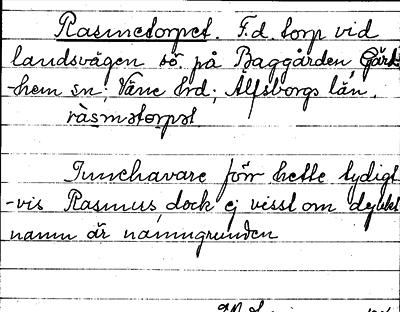 Rasmetorpet. F.d. torp vid
landsvägen sö. på Baggården, Gärd-
hem sn; Väne hd; Älfsborgs län.
ràsmətorpət
Innehavare förr hette tydligt-
-vis Rasmus, dock ej visst om dylikt
namn är namngrunden